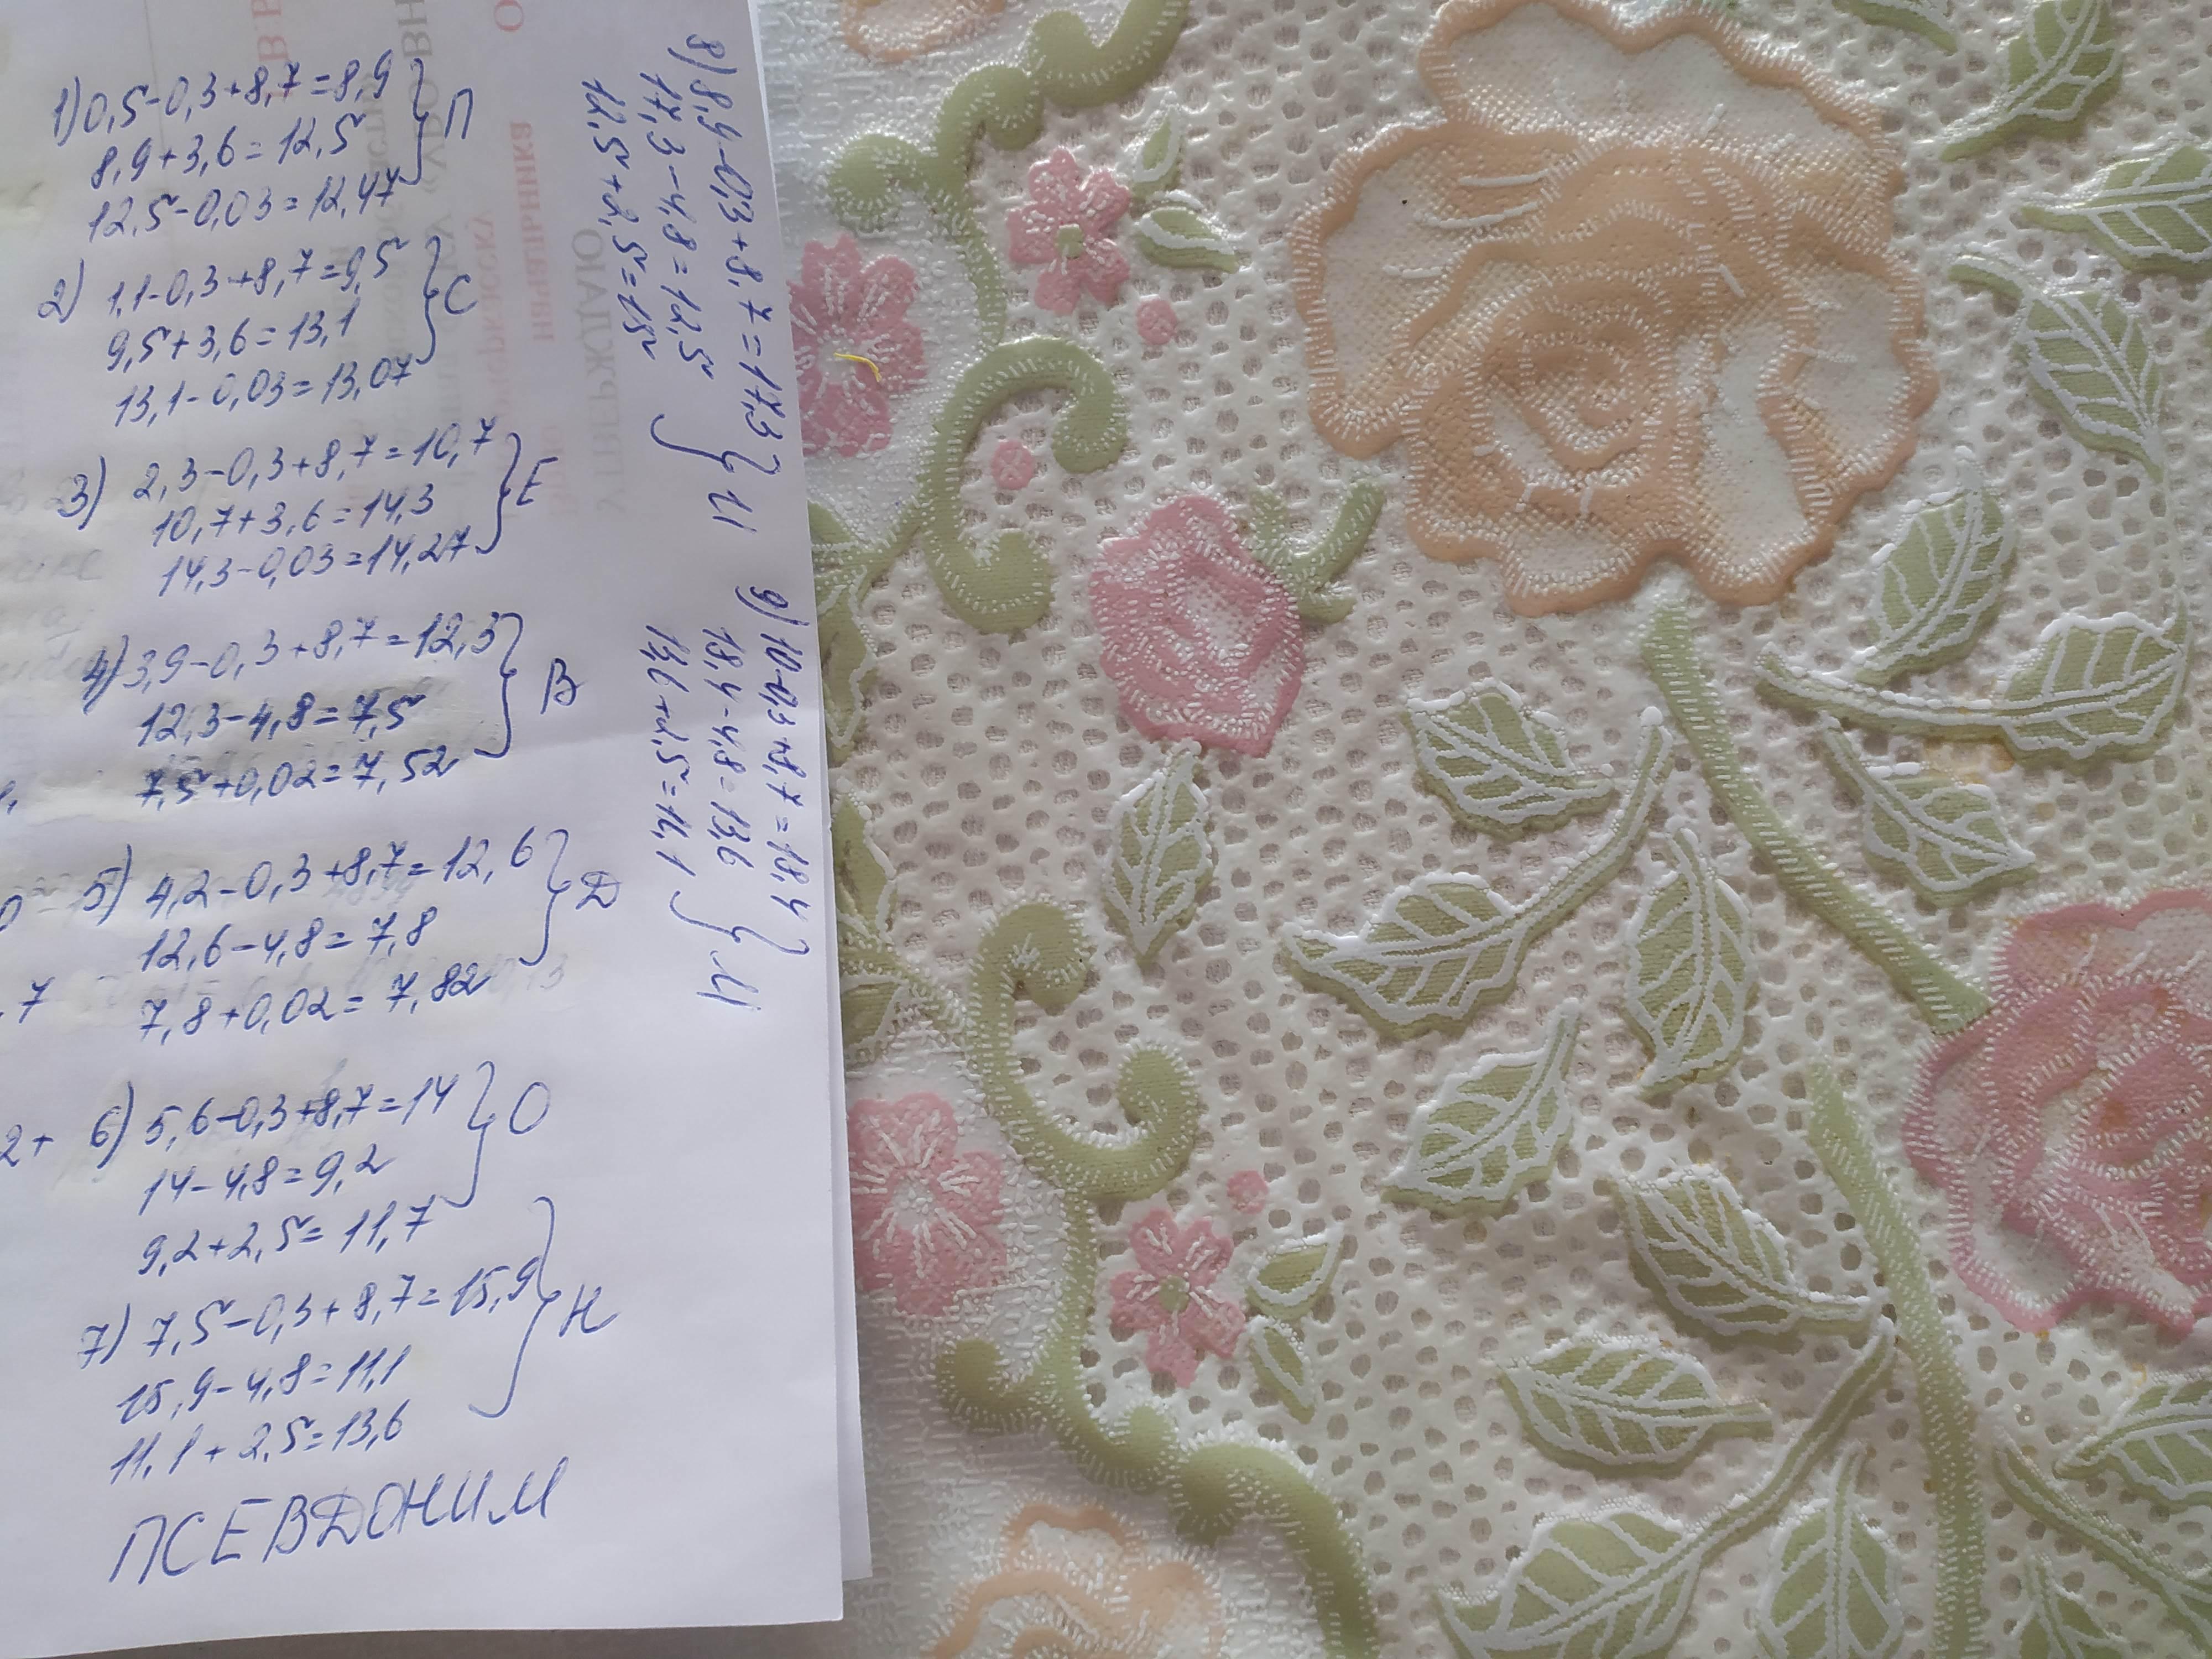 1) 0,5-0,3+8,7=8,9
8,9+3,6=12,5 } П
12,5-0,03=12,47
2) 1,1-0,3+8,7=9,5
9,5+3,6=13,1 } С
13,1-0,03=13,07
3) 2,3-0,3+8,7=10,7
10,7+3,6=14,3 } Е
14,3-0,03=14,27
4) 3,9-0,3+8,7=12,3
12,3-4,8=7,5 } В
7,5+0,02=7,52
5) 4,2-0,3+8,7=12,6
12,6-4,8=7,8 } Д
7,8+0,02=7,82
6) 5,6-0,3+8,7=14
14-4,8=9,2 } О
9,2+2,5=11,7
7) 7,5-0,3+8,7=15,9
15,9-4,8=11,1 } Н
11,1+2,5=13,6
ПСЕВДОНИМ
8) 8,9-0,3+8,7=17,3
17,3-4,8=12,5 } И
12,5+2,5=15
9) 10-0,3+8,7=18,4
18,4-4,8=13,6 } М
13,6+2,5=16,1
,7
2+
УТВЕРЖДАЮ
начальника